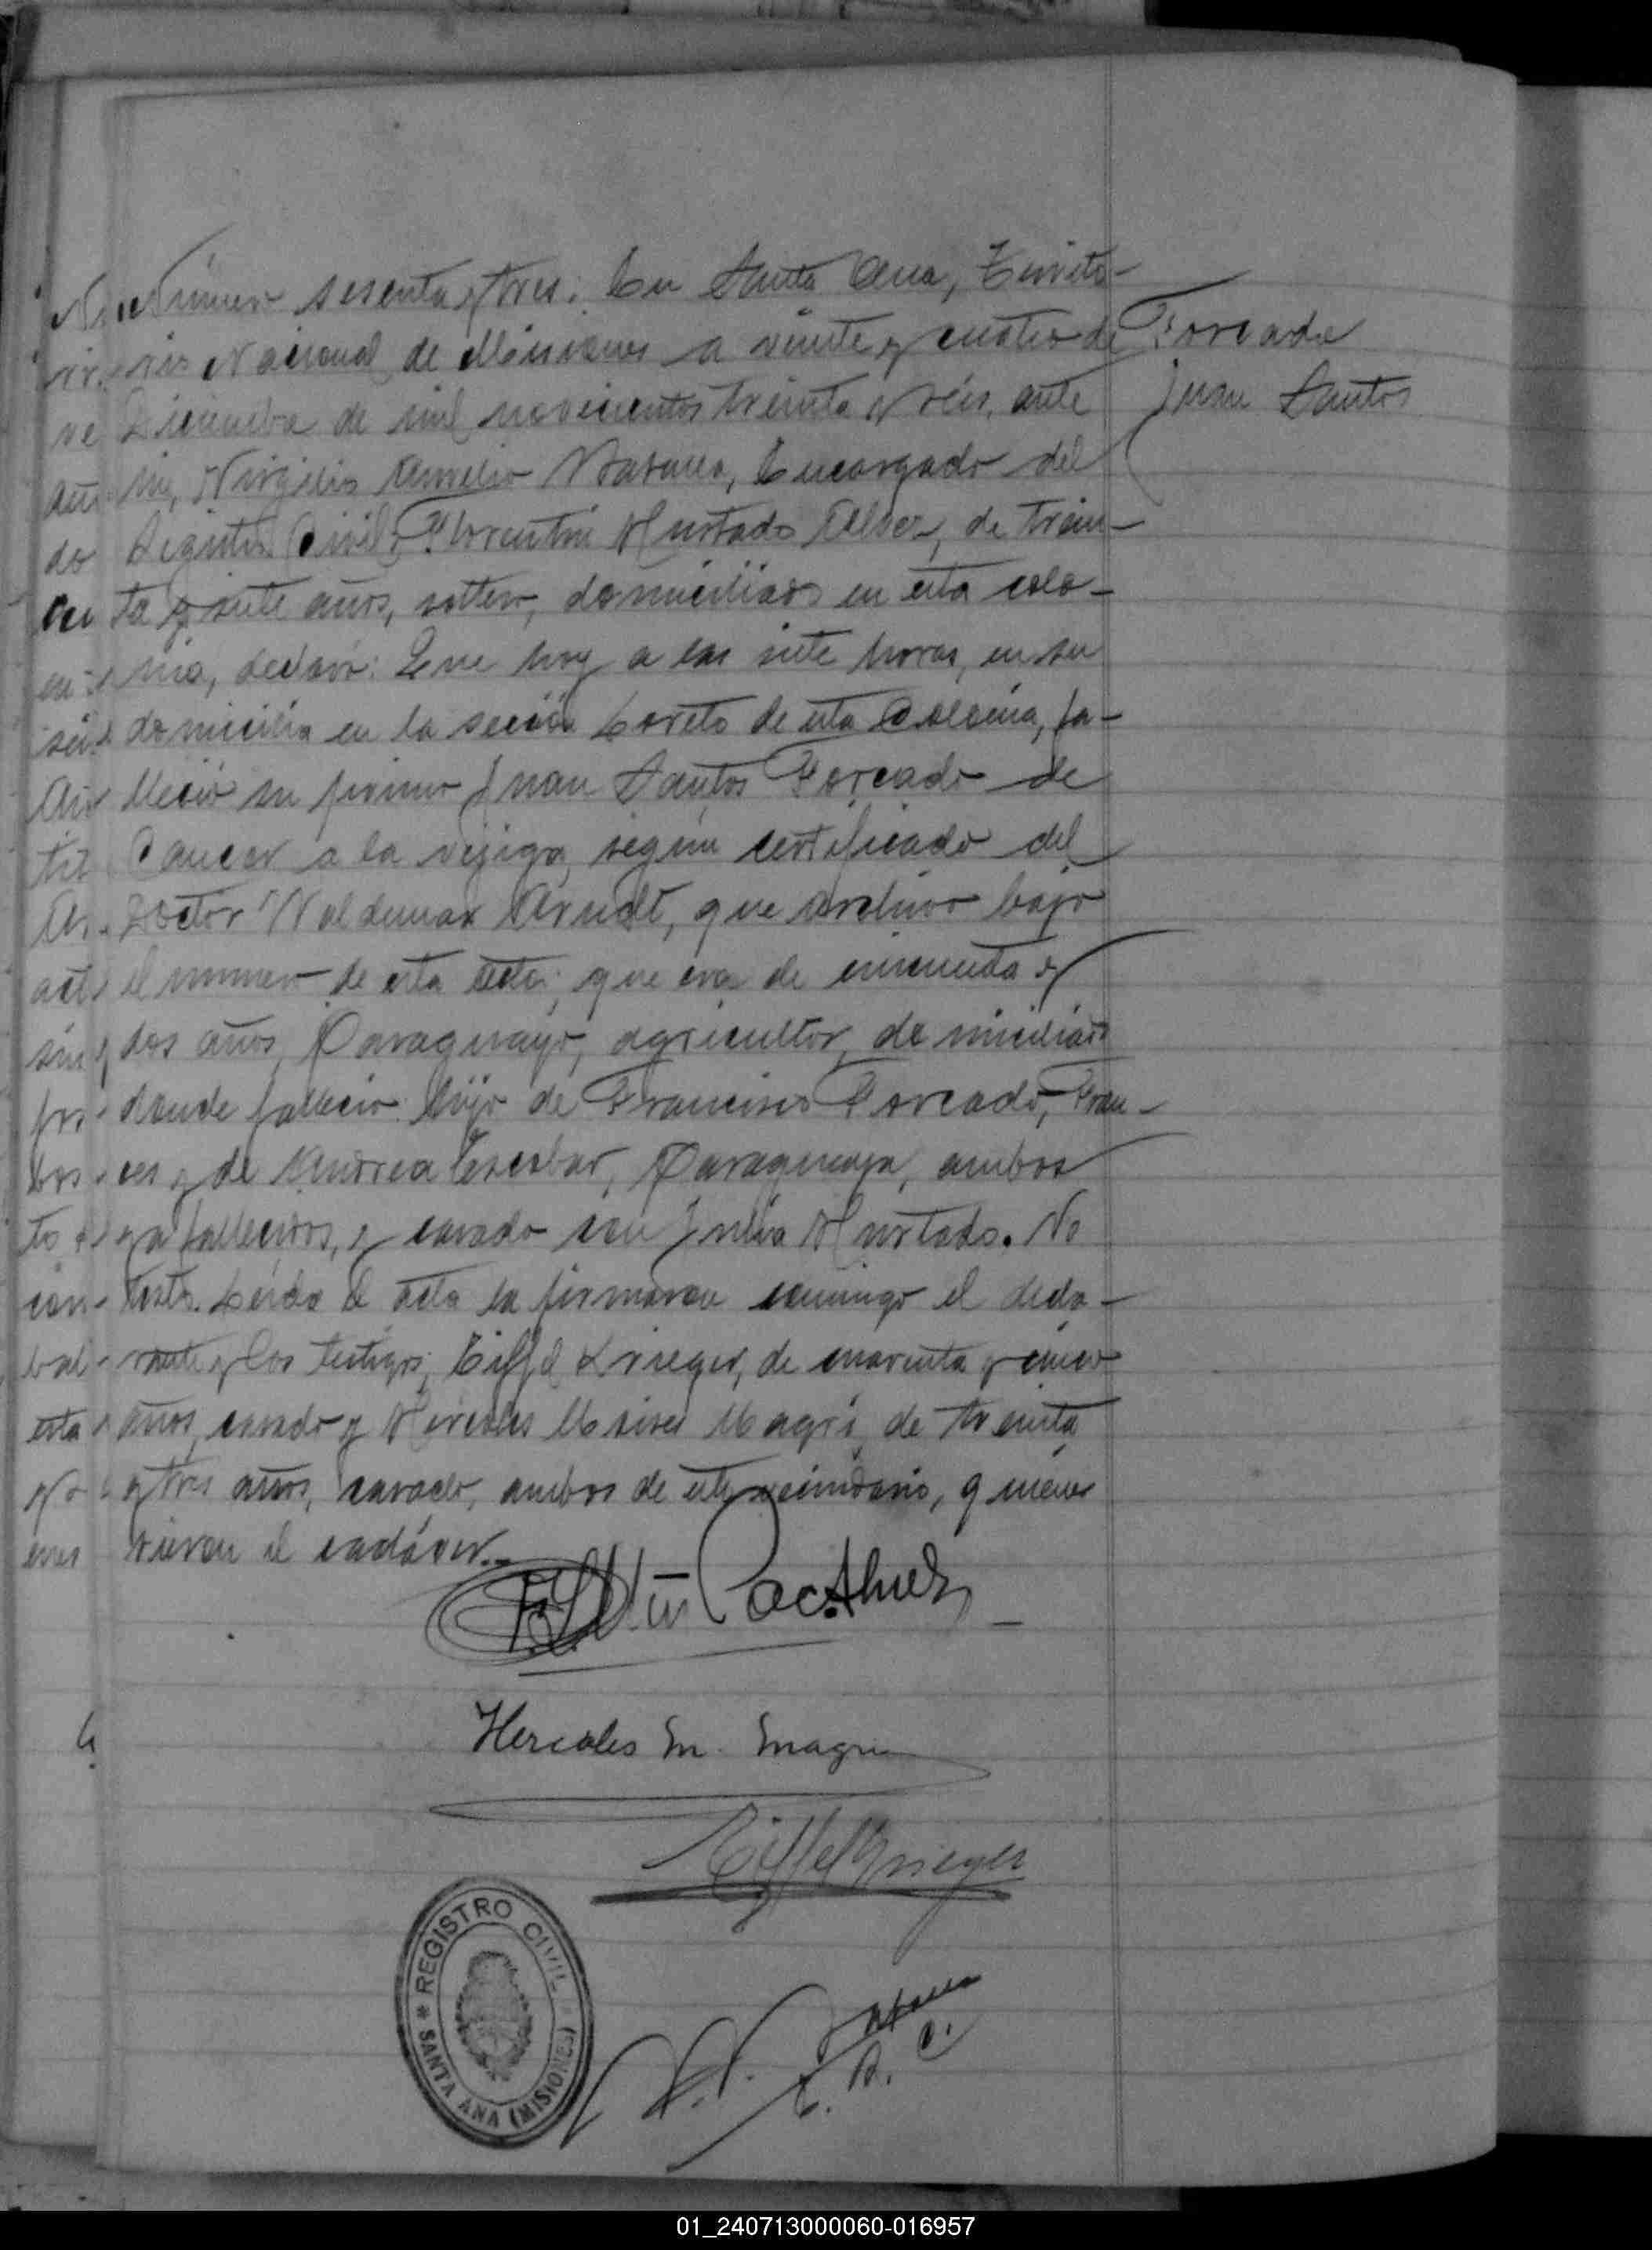 Número sesenta y tres: En Santa Ana, Territo-
rio Nacional de Misiones a veinte y cuatro de
Diciembre de mil novecientos treinta y seis, ante
mi, Virgilio Aurelio Encargado del
Registro Civil, Florentin Hurtado de trein-
ta y siete años, soltero, domiciliado en esta colo-
nia, declaró: Que hoy a las siete horas, en su
domicilio en la sección Loreto de esta Colonia, fa-
lleció su primo Juan Santos Forcado de
Cancer a la vejiga, según certificado del
Doctor Waldemar Arndt, que archivo bajo
el numero de esta acta; que era de cincuenta y
dos años, Paraguayo, agricultor, domiciliado
donde falleció hijo de Francisco Forcado, Fran-
ces y de Andrea Escobar, Paraguaya, ambos
ya fallecidos, y casado con Julia Hurtado. No
testó. Leida el acta la firmaron conmigo el decla-
rante y los testigos, Eiffel Krieger, de cuarenta y cinco
años, casado y Hercoles Moises Magri, de treinta
y tres años, casado, ambos de este vecindario, quienes
vieron el cadáver.-
Forcada
Juan Santos
Hercoles M. Magri
Eiffel Krieger
REGISTRO CIVIL
* SANTA ANA (MISIONES)
E. R. C.
01_240713000060-016957